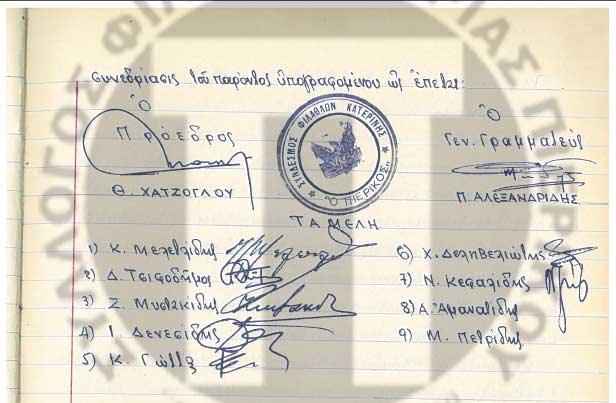 συνεδρίασις τοῦ παρόντος ὑπογραφομένου ὡς ἕπεται:
Ὁ
Πρόεδρος
Θ. ΧΑΤΖΟΓΛΟΥ
ΣΥΝΔΕΣΜΟΣ ΦΙΛΑΘΛΩΝ ΚΑΤΕΡΙΝΗΣ
"Ο ΠΙΕΡΙΚΟΣ"
Ὁ
Γεν. Γραμματεύς
Π. ΑΛΕΞΑΝΔΡΙΔΗΣ
ΤΑ ΜΕΛΗ
1) Κ. Μελετλίδης
2) Δ. Τσιφοδήμος
3) Ζ. Μυστακίδης
4) Ι. Δενεσίδης
5) Κ. Γώττα
6) Χ. Δεληβελιώτης
7) Ν. Κεφαλίδης
8) Α. Ἀμανατίδης
9) Μ. Πετρίδης